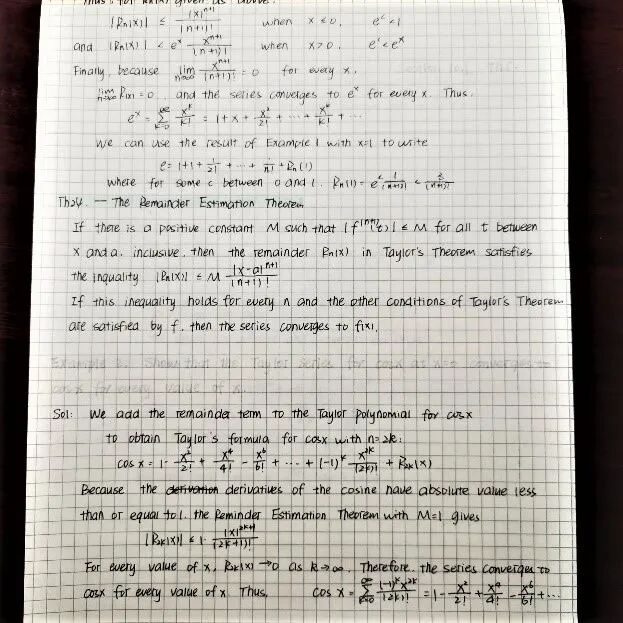 Thus, for Rn(x) given as above.
|Rn(x)| ≤ |x|^{n+1}/(n+1)! when x ≤ 0, e^c < 1
and |Rn(x)| < e^x x^{n+1}/(n+1)! when x > 0, e^c < e^x
Finally, because lim_{n→∞} x^{n+1}/(n+1)! = 0 for every x,
lim_{n→∞} Rn(x) = 0, and the series converges to e^x for every x. Thus,
e^x = ∑_{k=0}^{∞} x^k/k! = 1 + x + x^2/2! + ... + x^k/k! + ...
We can use the result of Example 1 with x=1 to write
e = 1 + 1 + 1/2! + ... + 1/n! + Rn(1)
where for some c between 0 and 1, Rn(1) = e^c 1/(n+1)! < 3/(n+1)!
Th24. — The Remainder Estimation Theorem
If there is a positive constant M such that |f^{(n+1)}(t)| ≤ M for all t between
x and a, inclusive, then the remainder Rn(x) in Taylor's Theorem satisfies
the inquality |Rn(x)| ≤ M |x-a|^{n+1}/(n+1)!
If this inequality holds for every n and the other conditions of Taylor's Theorem
are satisfied by f, then the series converges to f(x).
Example 2. Show that the Taylor Series for cosx at x=0 converges to
cosx for every value of x.
Sol: We add the remainder term to the Taylor Polynomial for cosx
to obtain Taylor's formula for cosx with n=2k:
cos x = 1 - x^2/2! + x^4/4! - x^6/6! + ... + (-1)^k x^{2k}/(2k)! + R2k(x)
Because the derivation derivatives of the cosine have absolute value less
than or equal to 1, the Reminder Estimation Theorem with M=1 gives
|R2k(x)| ≤ 1· |x|^{2k+1}/(2k+1)!
For every value of x, R2k(x) → 0 as k → ∞. Therefore, the series converges to
cosx for every value of x. Thus, cos x = ∑_{k=0}^{∞} (-1)^k x^{2k}/(2k)! = 1 - x^2/2! + x^4/4! - x^6/6! + ...